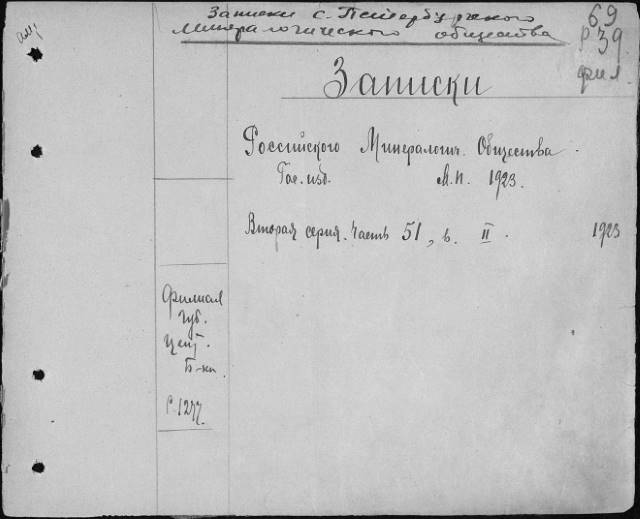 Записки С. Петербургского
Минералогического общества
69
Р39
фил.
Записки
Российского Минералогич. Общества.
Гос. изд. М.П. 1923.
Вторая серия. Часть 51, в. II. 1923
Филиал
Губ.
Цент.
Б-ки